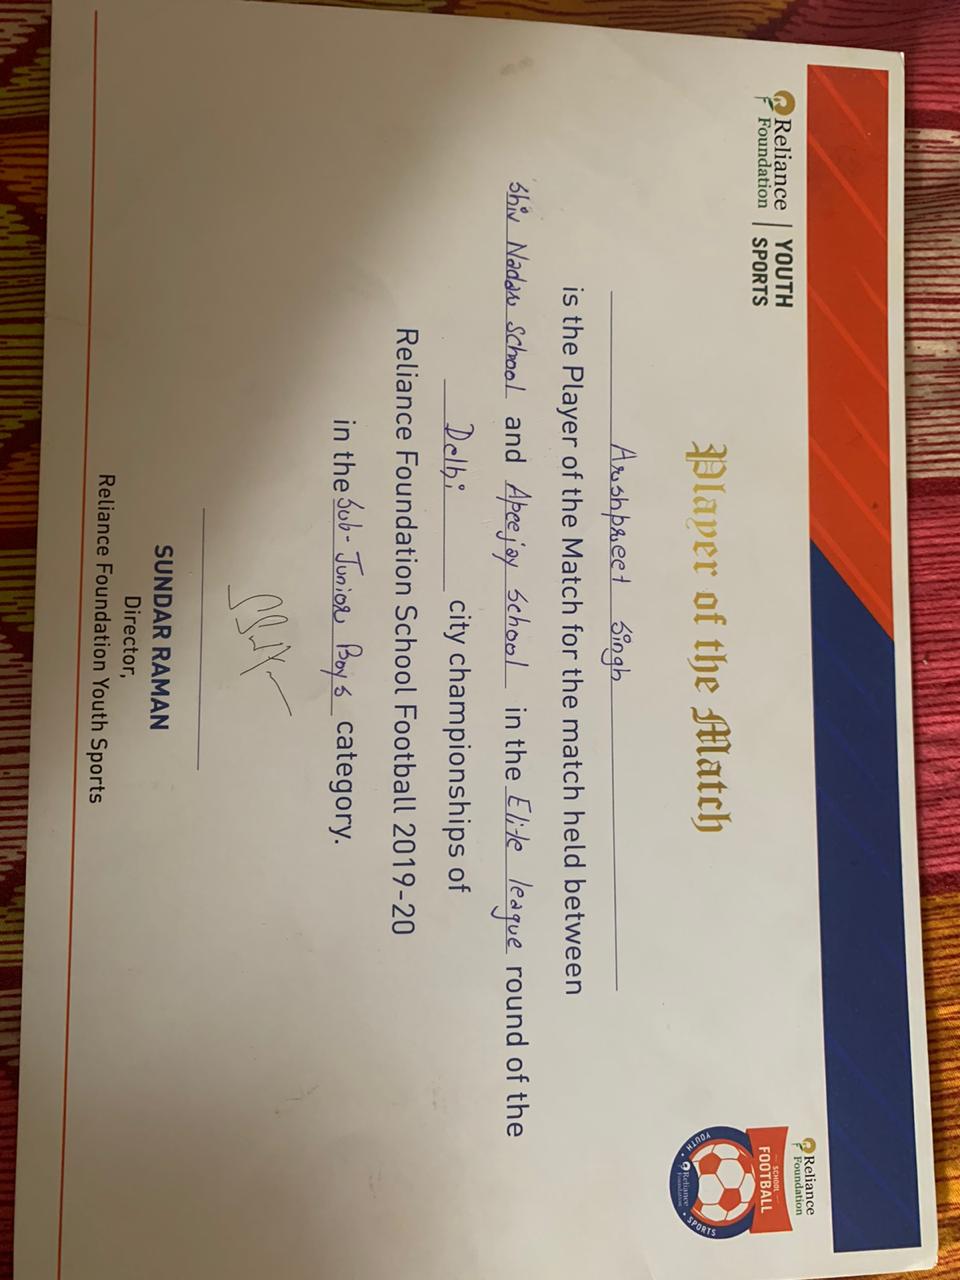 Reliance
Foundation
YOUTH
SPORTS
Reliance
Foundation
SCHOOL
FOOTBALL
YOUTH • Reliance Foundation • SPORTS
Player of the Match
Arshpreet Singh
is the Player of the Match for the match held between
Shiv Nadar School and Apeejay School in the Elite league round of the
Delhi city championships of
Reliance Foundation School Football 2019-20
in the Sub-Junior Boys category.
SUNDAR RAMAN
Director,
Reliance Foundation Youth Sports